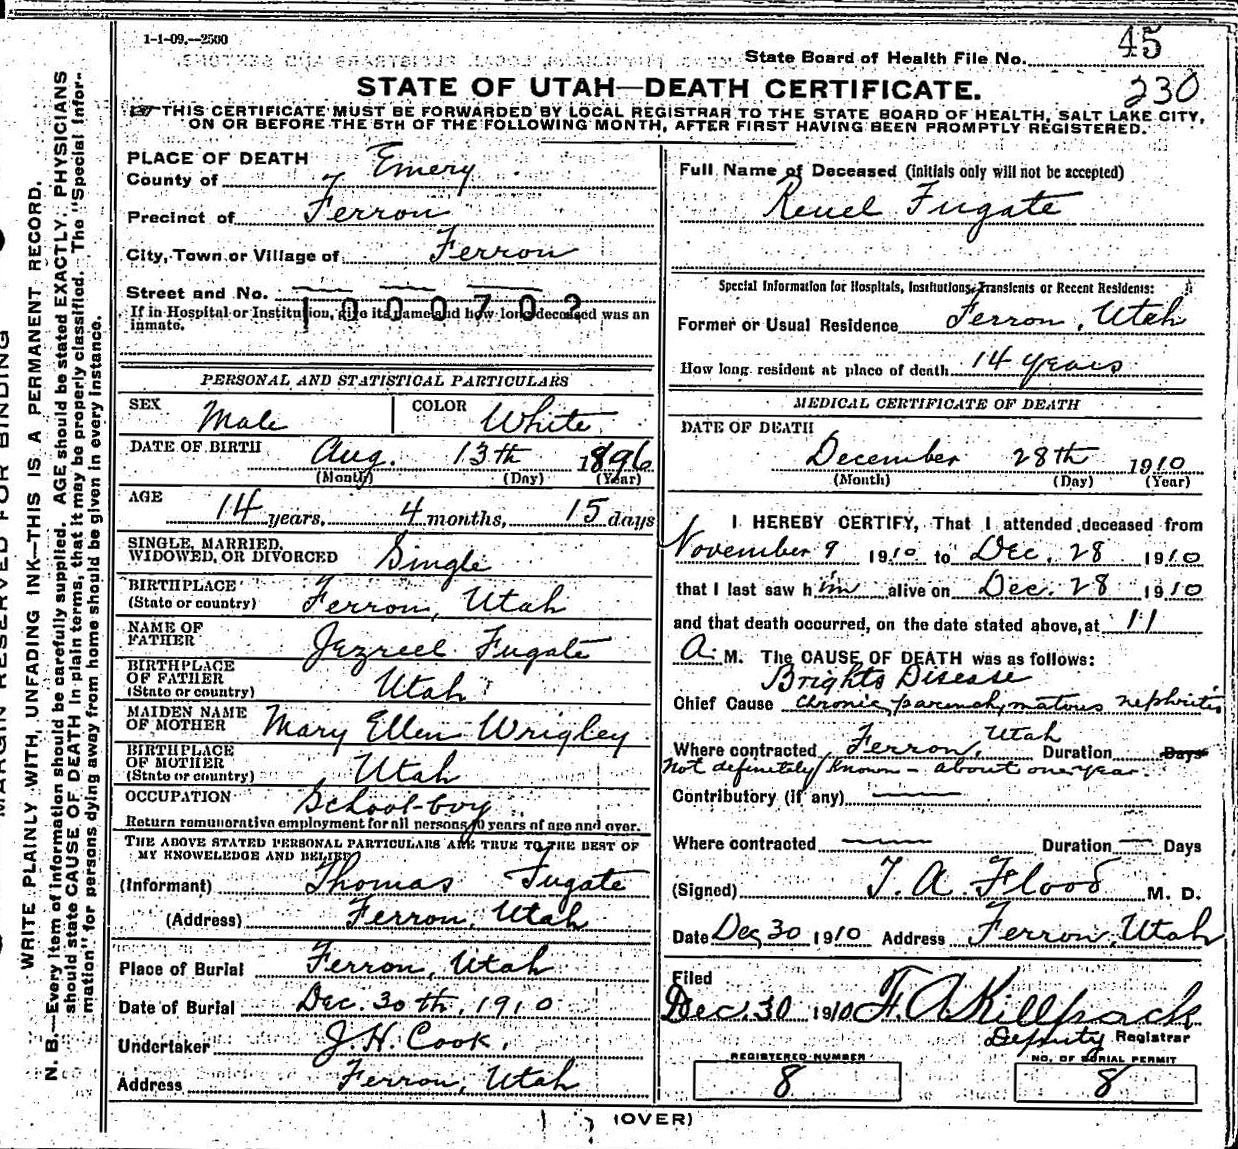 1-1-09.—2500
State Board of Health File No. 45
230
STATE OF UTAH—DEATH CERTIFICATE.
THIS CERTIFICATE MUST BE FORWARDED BY LOCAL REGISTRAR TO THE STATE BOARD OF HEALTH, SALT LAKE CITY,
ON OR BEFORE THE 5TH OF THE FOLLOWING MONTH, AFTER FIRST HAVING BEEN PROMPTLY REGISTERED.
PLACE OF DEATH
County of Emery
Precinct of Ferron
City, Town or Village of Ferron
Street and No.
1000702
If in Hospital or Institution, give its name and how long deceased was an
inmate.
PERSONAL AND STATISTICAL PARTICULARS
SEX Male COLOR White
DATE OF BIRTH Aug. 13th 1896
(Month) (Day) (Year)
AGE 14 years, 4 months, 15 days
SINGLE, MARRIED,
WIDOWED, OR DIVORCED Single
BIRTHPLACE
(State or country) Ferron, Utah
NAME OF
FATHER Jezreel Fugate
BIRTHPLACE
OF FATHER
(State or country) Utah
MAIDEN NAME
OF MOTHER Mary Ellen Wrigley
BIRTHPLACE
OF MOTHER
(State or country) Utah
OCCUPATION School-boy
Return remunerative employment for all persons 10 years of age and over.
THE ABOVE STATED PERSONAL PARTICULARS ARE TRUE TO THE BEST OF
MY KNOWLEDGE AND BELIEF
(Informant) Thomas Fugate
(Address) Ferron, Utah
Place of Burial Ferron, Utah
Date of Burial Dec. 30th, 1910
Undertaker J. H. Cook.
Address Ferron, Utah
Full Name of Deceased (initials only will not be accepted)
Reuel Fugate
Special Information for Hospitals, Institutions, Transients or Recent Residents:
Former or Usual Residence Ferron, Utah
How long resident at place of death 14 years
MEDICAL CERTIFICATE OF DEATH
DATE OF DEATH
December 28th 1910
(Month) (Day) (Year)
I HEREBY CERTIFY, That I attended deceased from
November 9 1910 to Dec. 28 1910
that I last saw him alive on Dec. 28 1910
and that death occurred, on the date stated above, at 11
A. M. The CAUSE OF DEATH was as follows:
Brights Disease
Chief Cause chronic parenchymatous nephritis
Where contracted Ferron, Utah Duration Days
Not definitely known - about one year.
Contributory (if any)
Where contracted Duration Days
(Signed) T. A. Flood M. D.
Date Dec 30 1910 Address Ferron, Utah
Filed
Dec. 30 1910 F. A. Killpack
Deputy Registrar
REGISTERED NUMBER
8
NO. OF BURIAL PERMIT
8
(OVER)
MARGIN RESERVED FOR BINDING
WRITE PLAINLY WITH UNFADING INK—THIS IS A PERMANENT RECORD.
N. B.—Every item of information should be carefully supplied. AGE should be stated EXACTLY. PHYSICIANS
should state CAUSE OF DEATH in plain terms, that it may be properly classified. The "Special Infor-
mation" for persons dying away from home should be given in every instance.